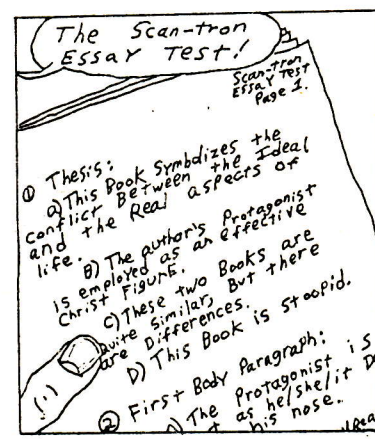 The Scan-tron
Essay Test!
Scan-tron
Essay Test
Page 1.
① Thesis:
a) This Book Symbolizes the
conflict Between the Ideal
and the Real aspects of
life.
B) The author's Protagonist
is employed as an effective
Christ Figure.
C) These two Books are
quite similar, But there
are Differences.
D) This Book is stoopid.
② First Body Paragraph:
The Protagonist is
as he/she/it
his nose.